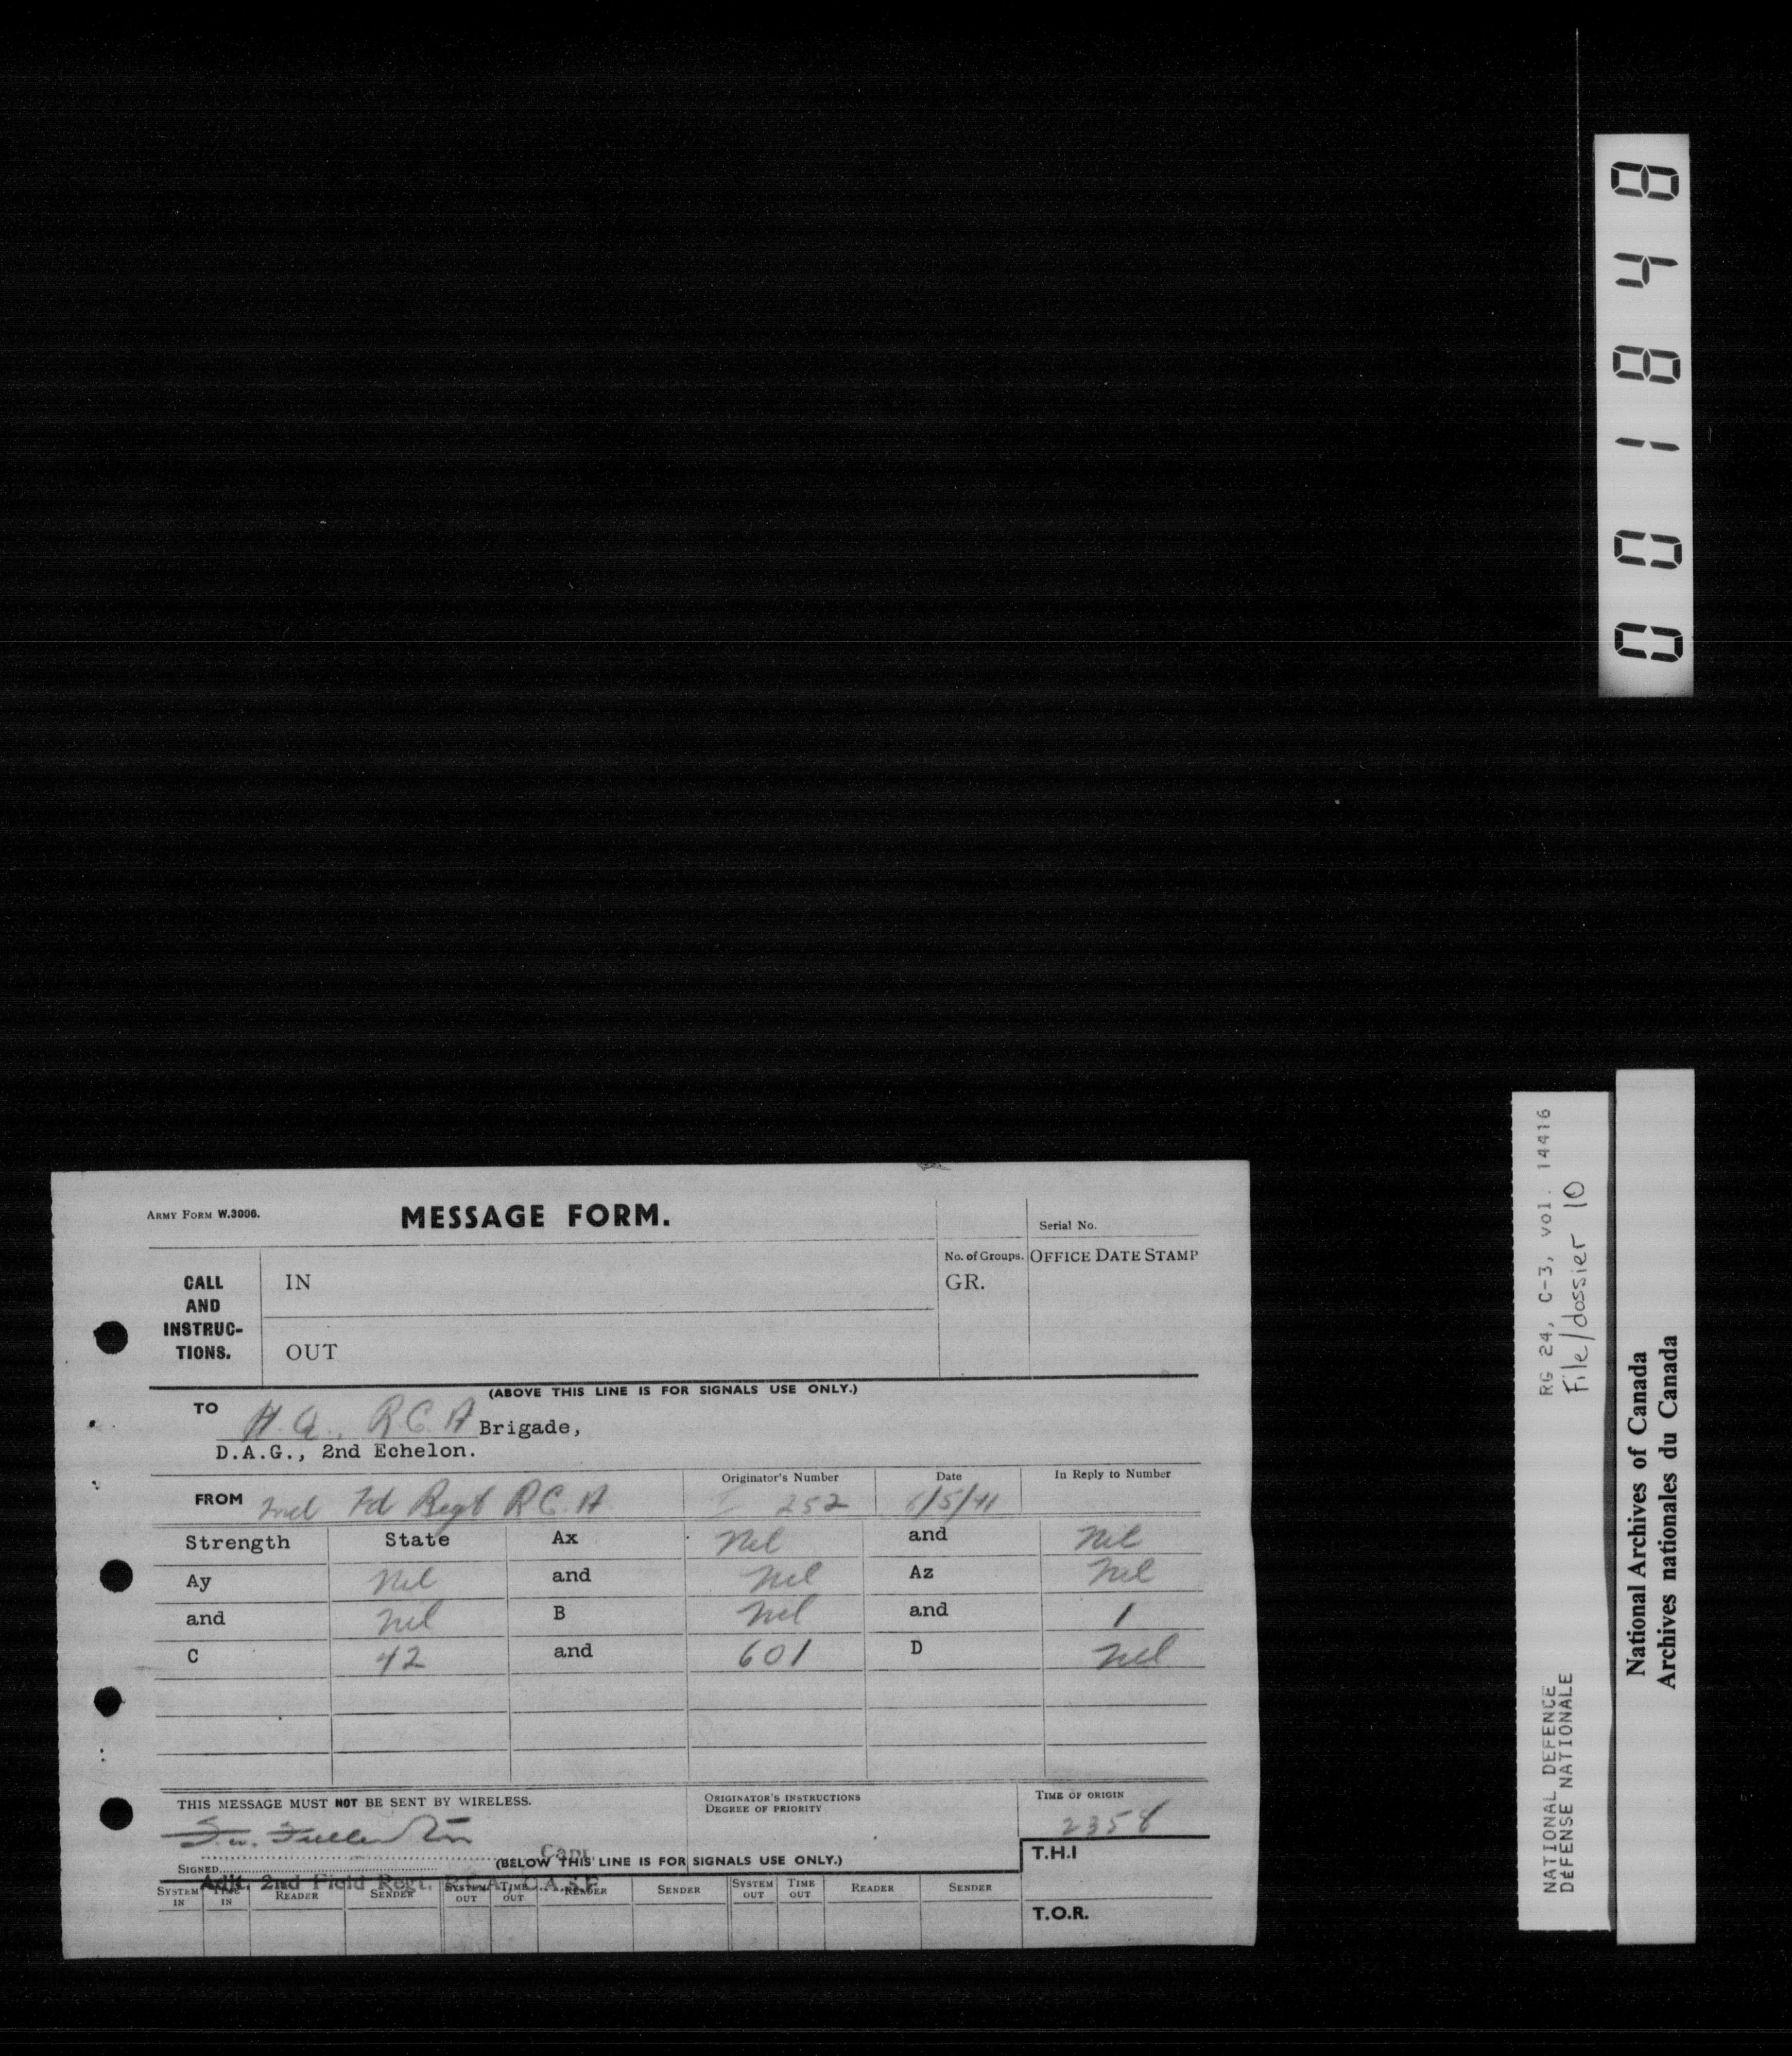 001848
ARMY FORM W.3006.
MESSAGE FORM.
Serial No.
CALL AND INSTRUC- TIONS.
IN
No. of Groups.
GR.
OFFICE DATE STAMP
OUT
(ABOVE THIS LINE IS FOR SIGNALS USE ONLY.)
TO H.Q., R.C.A Brigade,
D.A.G., 2nd Echelon.
Originator's Number
Date
In Reply to Number
FROM 2nd Fd Regt R.C.A. 252 6/5/41
Strength State Ax Nil and Nil
Ay Nil and Nil Az Nil
and Nil B Nil and 1
C 42 and 601 D Nil
THIS MESSAGE MUST NOT BE SENT BY WIRELESS.
ORIGINATOR'S INSTRUCTIONS
DEGREE OF PRIORITY
TIME OF ORIGIN
2358
Capt.
SIGNED
(BELOW THIS LINE IS FOR SIGNALS USE ONLY.)
T.H.I
Adjt. 2nd Field Regt. R.C.A., C.A.S.F.
SYSTEM IN TIME IN READER SENDER SYSTEM OUT TIME OUT READER SENDER SYSTEM OUT TIME OUT READER SENDER
T.O.R.
NATIONAL DEFENCE RG 24, C-3, vol. 14416
DÉFENSE NATIONALE File/dossier 10
National Archives of Canada
Archives nationales du Canada